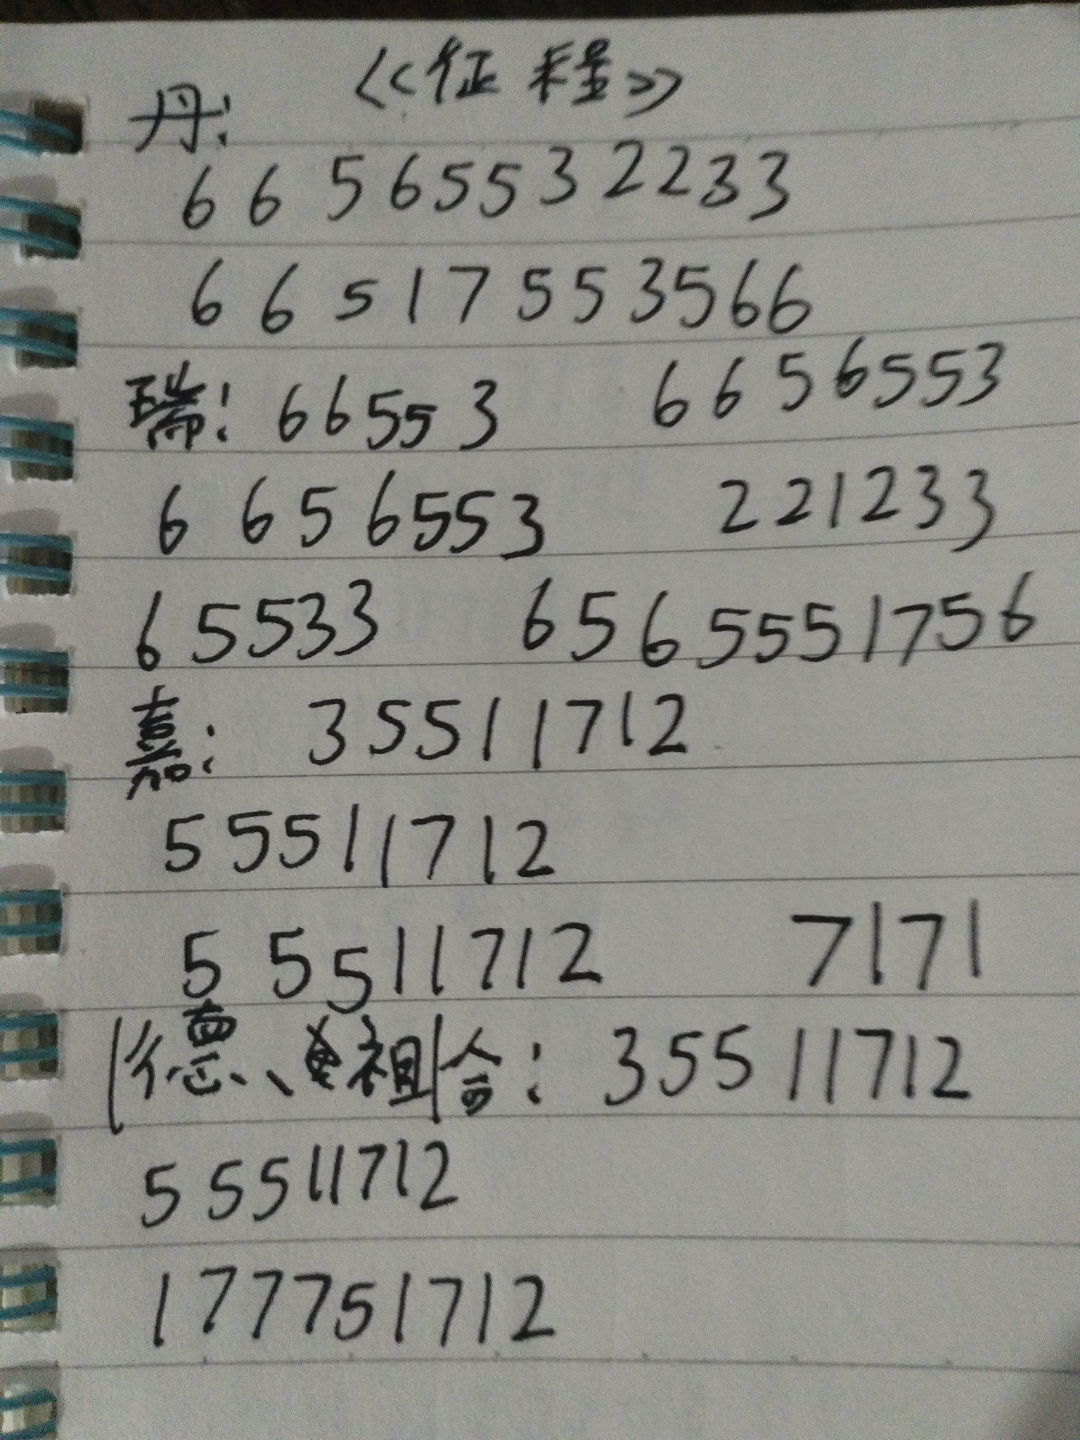 《征程》
丹:
6 6 5 6 5 5 3 2 2 3 3
6 6 5 1 7 5 5 3 5 6 6
瑞: 6 6 5 5 3 6 6 5 6 5 5 3
6 6 5 6 5 5 3 2 2 1 2 3 3
6 5 5 3 3 6 5 6 5 5 5 1 7 5 6
嘉: 3 5 5 1 1 7 1 2
5 5 5 1 1 7 1 2
5 5 5 1 1 7 1 2 7 1 7 1
(德、祖)合: 3 5 5 1 1 7 1 2
5 5 5 1 1 7 1 2
1 7 7 7 5 1 7 1 2